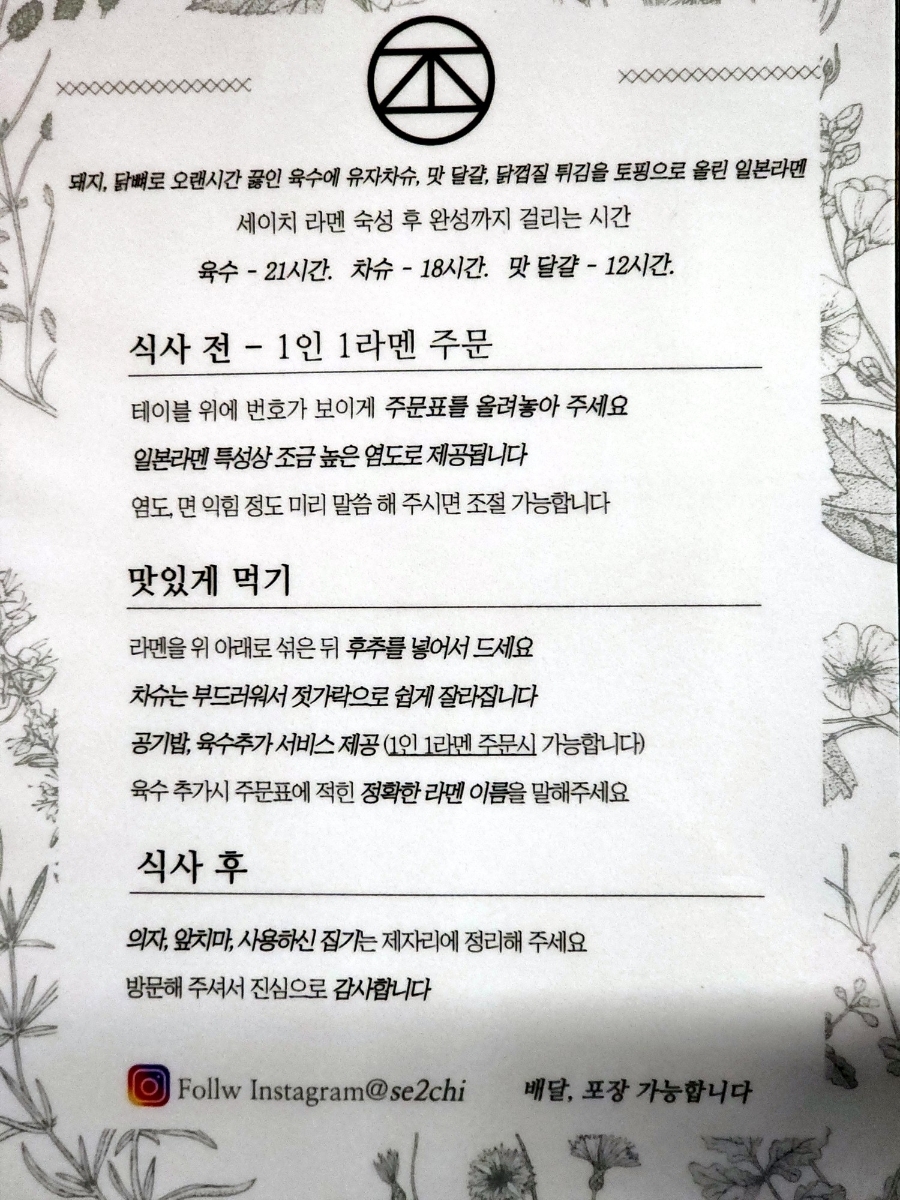 돼지, 닭뼈로 오랜시간 끓인 육수에 유자차슈, 맛 달걀, 닭껍질 튀김을 토핑으로 올린 일본라멘
세이치 라멘 숙성 후 완성까지 걸리는 시간
육수 - 21시간. 차슈 - 18시간. 맛 달걀 - 12시간.
식사 전 - 1인 1라멘 주문
테이블 위에 번호가 보이게 주문표를 올려놓아 주세요
일본라멘 특성상 조금 높은 염도로 제공됩니다
염도, 면 익힘 정도 미리 말씀 해 주시면 조절 가능합니다
맛있게 먹기
라멘을 위 아래로 섞은 뒤 후추를 넣어서 드세요
차슈는 부드러워서 젓가락으로 쉽게 잘라집니다
공기밥, 육수추가 서비스 제공 (1인 1라멘 주문시 가능합니다)
육수 추가시 주문표에 적힌 정확한 라멘 이름을 말해주세요
식사 후
의자, 앞치마, 사용하신 집기는 제자리에 정리해 주세요
방문해 주셔서 진심으로 감사합니다
Follw Instagram@se2chi 배달, 포장 가능합니다